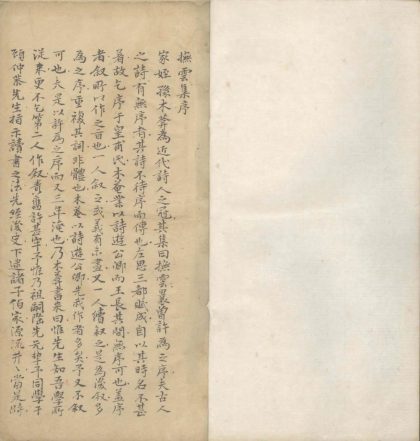 撫雲集序
家姪孫木菴為近代詩人之冠其集曰撫雲曩曾許為之序夫古人
之詩有無序者其詩不待序而傳也左思三都賦成自以其時名不甚
著故乞序于皇甫氏木菴業以詩遊公卿而王長其間無序可也蓋序
者叙所以作之旨也一人叙之或義有未盡又一人續叙之是為後叙多
為之序重複其詞非體也木菴以詩遊公卿先我作者多矣予又不叙
可也夫是以許為之序而又三年淹也乃木菴書來曰惟先生知吾學所
從來更不乞第二人作叙青舊許甚牢予惟乃祖嗣陞先兄輩予同學于
顧仲恭先生指示讀書之法先經後史下逮諸子百家源流井丶當是時